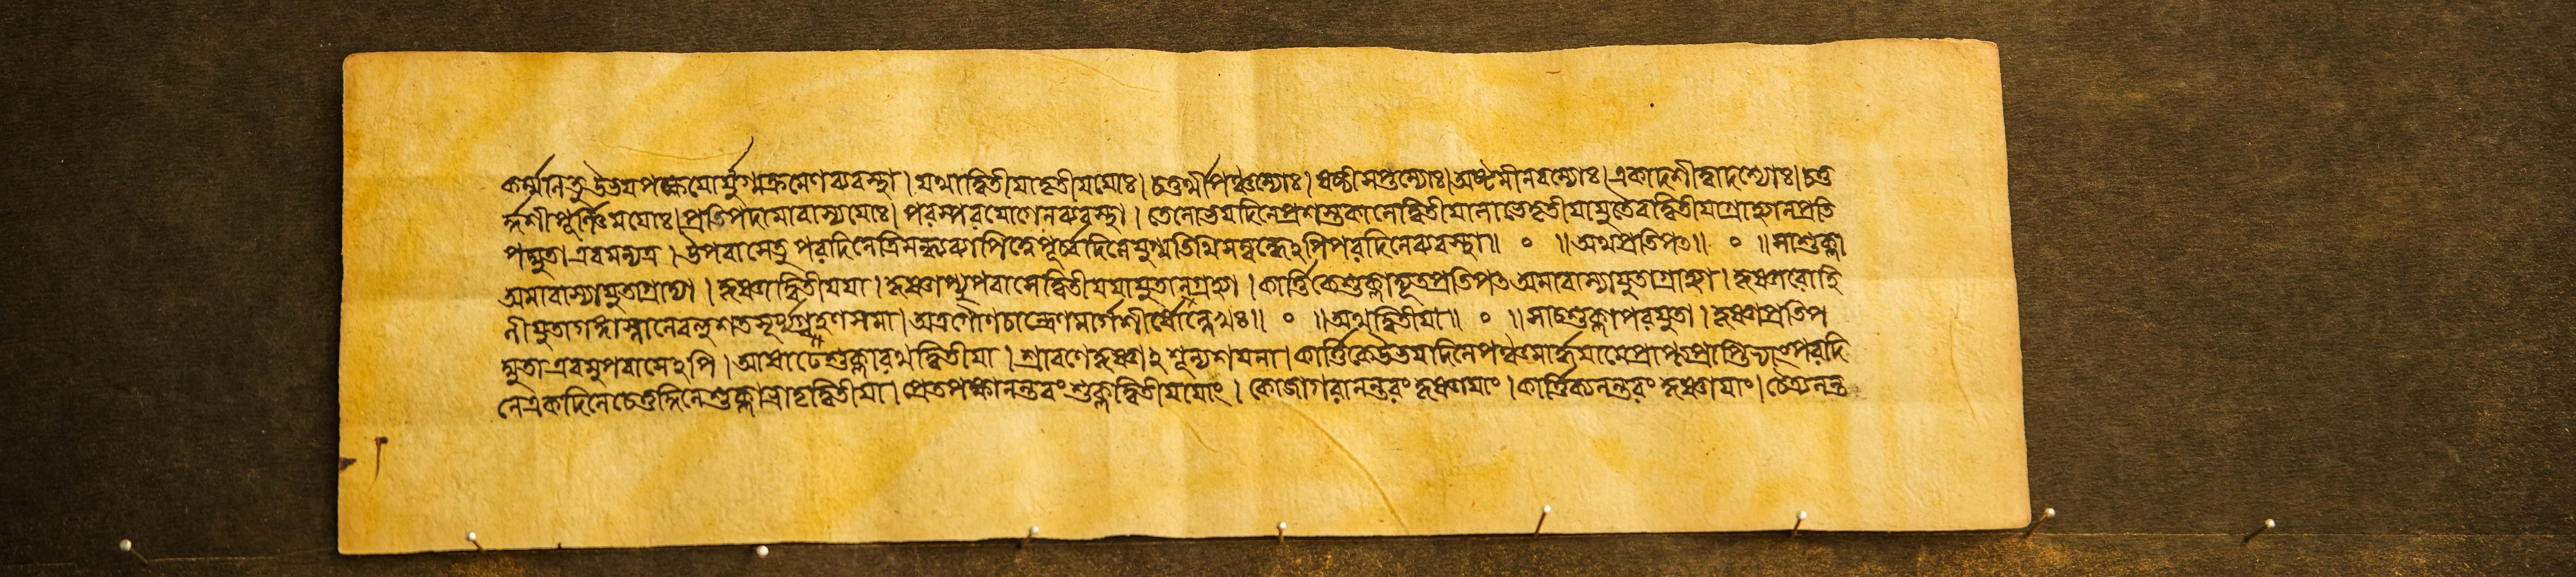 কর্ম্মনিতু উভয়পক্ষয়োর্যুগ্মক্রমেণব্যবস্থা। যথাদ্বিতীয়াতৃতীয়য়োঃ। চতুর্থীপঞ্চম্যোঃ। ষষ্ঠীসপ্তম্যোঃ। অষ্টমীনবম্যোঃ। একাদশীদ্বাদশ্যোঃ। চতু
র্দ্দশীপূর্ণ্ণিময়োঃ। প্রতিপদামাবাস্যয়োঃ। পরস্পরযোগেনব্যবস্থা। তেনোভয়দিনেপ্রশস্তকালেদ্বিতীয়ালাভেতৃতীয়াযুতৈবদ্বিতীয়াগ্রাহ্যানপ্রতি
পদ্যুতা এবমন্যত্র। উপবাসেতু পরদিনেত্রিসন্ধ্যব্যাপিত্বেপূর্ব্বদিনেযুগ্মতিথিসম্বন্ধেঽপিপরদিনেব্যবস্থা॥ ॰ ॥অথপ্রতিপৎ॥ ॰ ॥সাশুক্লা
অমাবাস্যাযুতাগ্রাহ্যা। কৃষ্ণাদ্বিতীয়য়া। কৃষ্ণাপ্যুপবাসেদ্বিতীয়য়াযুতানগ্রাহ্যা। কার্ত্তিকেশুক্লাদ্যূতপ্রতিপৎ অমাবাস্যাযুতাগ্রাহ্যা। কৃষ্ণারোহি
ণীযুতাগঙ্গাস্নানেবহুশতসূর্য্যগ্রহণসমা। অত্রগৌণচান্দ্রেণমার্গশীর্ষোল্লেখঃ॥ ॰ ॥অথদ্বিতীয়া॥ ॰ ॥সাচশুক্লাপরযুতা। কৃষ্ণাপ্রতিপ
দ্যুতা এবমুপবাসেঽপি। আষাঢ়েশুক্লারথদ্বিতীয়া। শ্রাবণেকৃষ্ণাঽশূন্যশয়না। কার্ত্তিকেউভয়দিনে
নেএকদিনেচেত্তদ্দিনেশুক্লাভ্রাতৃদ্বিতীয়া। প্রেতপক্ষানন্তরং শুক্লদ্বিতীয়ায়াং। কোজাগরানন্তরং কৃষ্ণায়াং। কার্ত্তিক্যনন্তরং কৃষ্ণায়াং। চৈত্র্যনন্ত